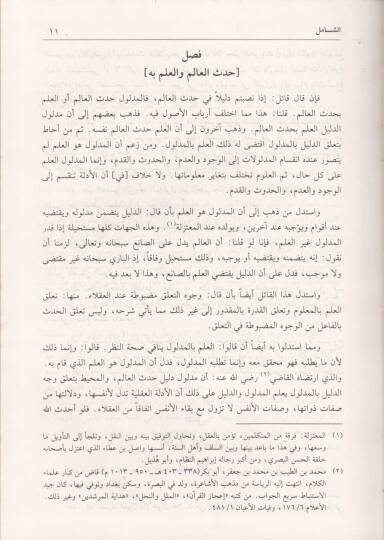 الشامل ١١
فصل
[حدث العالم والعلم به]
فإن قال قائل: إذا نصبتم دليلاً في حدث العالم، فالمدلول حدث العالم أو العلم
بحدث العالم. قلنا: هذا مما اختلف أرباب الأصول فيه. فذهب بعضهم إلى أن مدلول
الدليل العلم بحدث العالم. وذهب آخرون إلى أن العلم حدث العالم نفسه. ثم من أحاط
بتعلق الدليل بالمدلول اقتضى له ذلك العلم بالمدلول. ومن زعم أن المدلول هو العلم لم
يتصور عنده انقسام المدلولات إلى الوجود والعدم، والحدوث والقدم، وإنما المدلول العلم
على كل حال، ثم العلوم تختلف بتغاير معلوماتها. ولا خلاف [في] أن الأدلة تنقسم إلى
الوجود والعدم، والحدوث والقدم.
واستدل من ذهب إلى أن المدلول هو العلم بأن قال: الدليل يتضمن مدلوله ويقتضيه
عند أقوام ويوجبه عند آخرين، ويولده عند المعتزلة(١). وهذه الجهات كلها مستحيلة إذا قدر
المدلول غير العلم، فإنا لو قلنا: أن العالم يدل على الصانع سبحانه وتعالى، لزمنا أن
نقول: إنه يتضمنه ويقتضيه أو يوجبه، وذلك مستحيل وفاقاً، إذ الباري سبحانه غير مقتضى
ولا موجب، فدل على أن الدليل يقتضي العلم بالصانع، وهذا لا بعد فيه.
واستدل هذا القائل أيضاً بأن قال: وجوه التعلق مضبوطة عند العقلاء. منها: تعلق
العلم بالمعلوم وتعلق القدرة بالمقدور إلى غير ذلك مما يأتي شرحه، وليس تعلق الحدث
بالفاعل من الوجوه المضبوطة في التعلق.
ومما استدلوا به أيضاً أن قالوا: العلم بالمدلول ينافي صحة النظر. قالوا: وإنما ذلك
لأن ما يطلبه فهو محقق معه وإنما تطلبه المدلول، فدل أن المدلول هو العلم الذي قام به.
والذي ارتضاه القاضي(٢) رضي الله عنه: أن مدلول دليل حدث العالم، والمحيط بتعلق وجه
الدليل بالمدلول يعلم المدلول والدليل على ذلك أن الأدلة العقلية تدل لأنفسها، ودلالتها من
صفات ذواتها، وصفات الأنفس لا تزول مع بقاء الأنفس اتفاقاً من العقلاء. فلو أحدث الله
(١) المعتزلة: فرقة من المتكلمين، تؤمن بالعقل، وتحاول التوفيق بينه وبين النقل، وتلجأ إلى التأويل ما
وسعها، وفي هذا ما باعد بينها وبين السلف وأهل السنة. أسسها واصل بن عطاء الذي اعتزل بأصحابه
حلقة الحسن البصري، ومن أكبر رجاله إبراهيم النظام، وأبو هذيل.
(٢) محمد بن الطيب بن محمد بن جعفر، أبو بكر (٣٣٨ - ٤٠٣ هـ - ٩٥٠ - ١٠١٣ م) قاض من كبار علماء
الكلام، انتهت إليه الرياسة من مذهب الأشاعرة، ولد في البصرة، وسكن بغداد وتوفي فيها، كان جيد
الاستنباط سريع الجواب. من كتبه «إعجاز القرآن»، «الملل والنحل»، «هداية المرشدين» وغير ذلك.
الأعلام ١٧٦/٦، وفيات الأعيان ٤٨١/١.